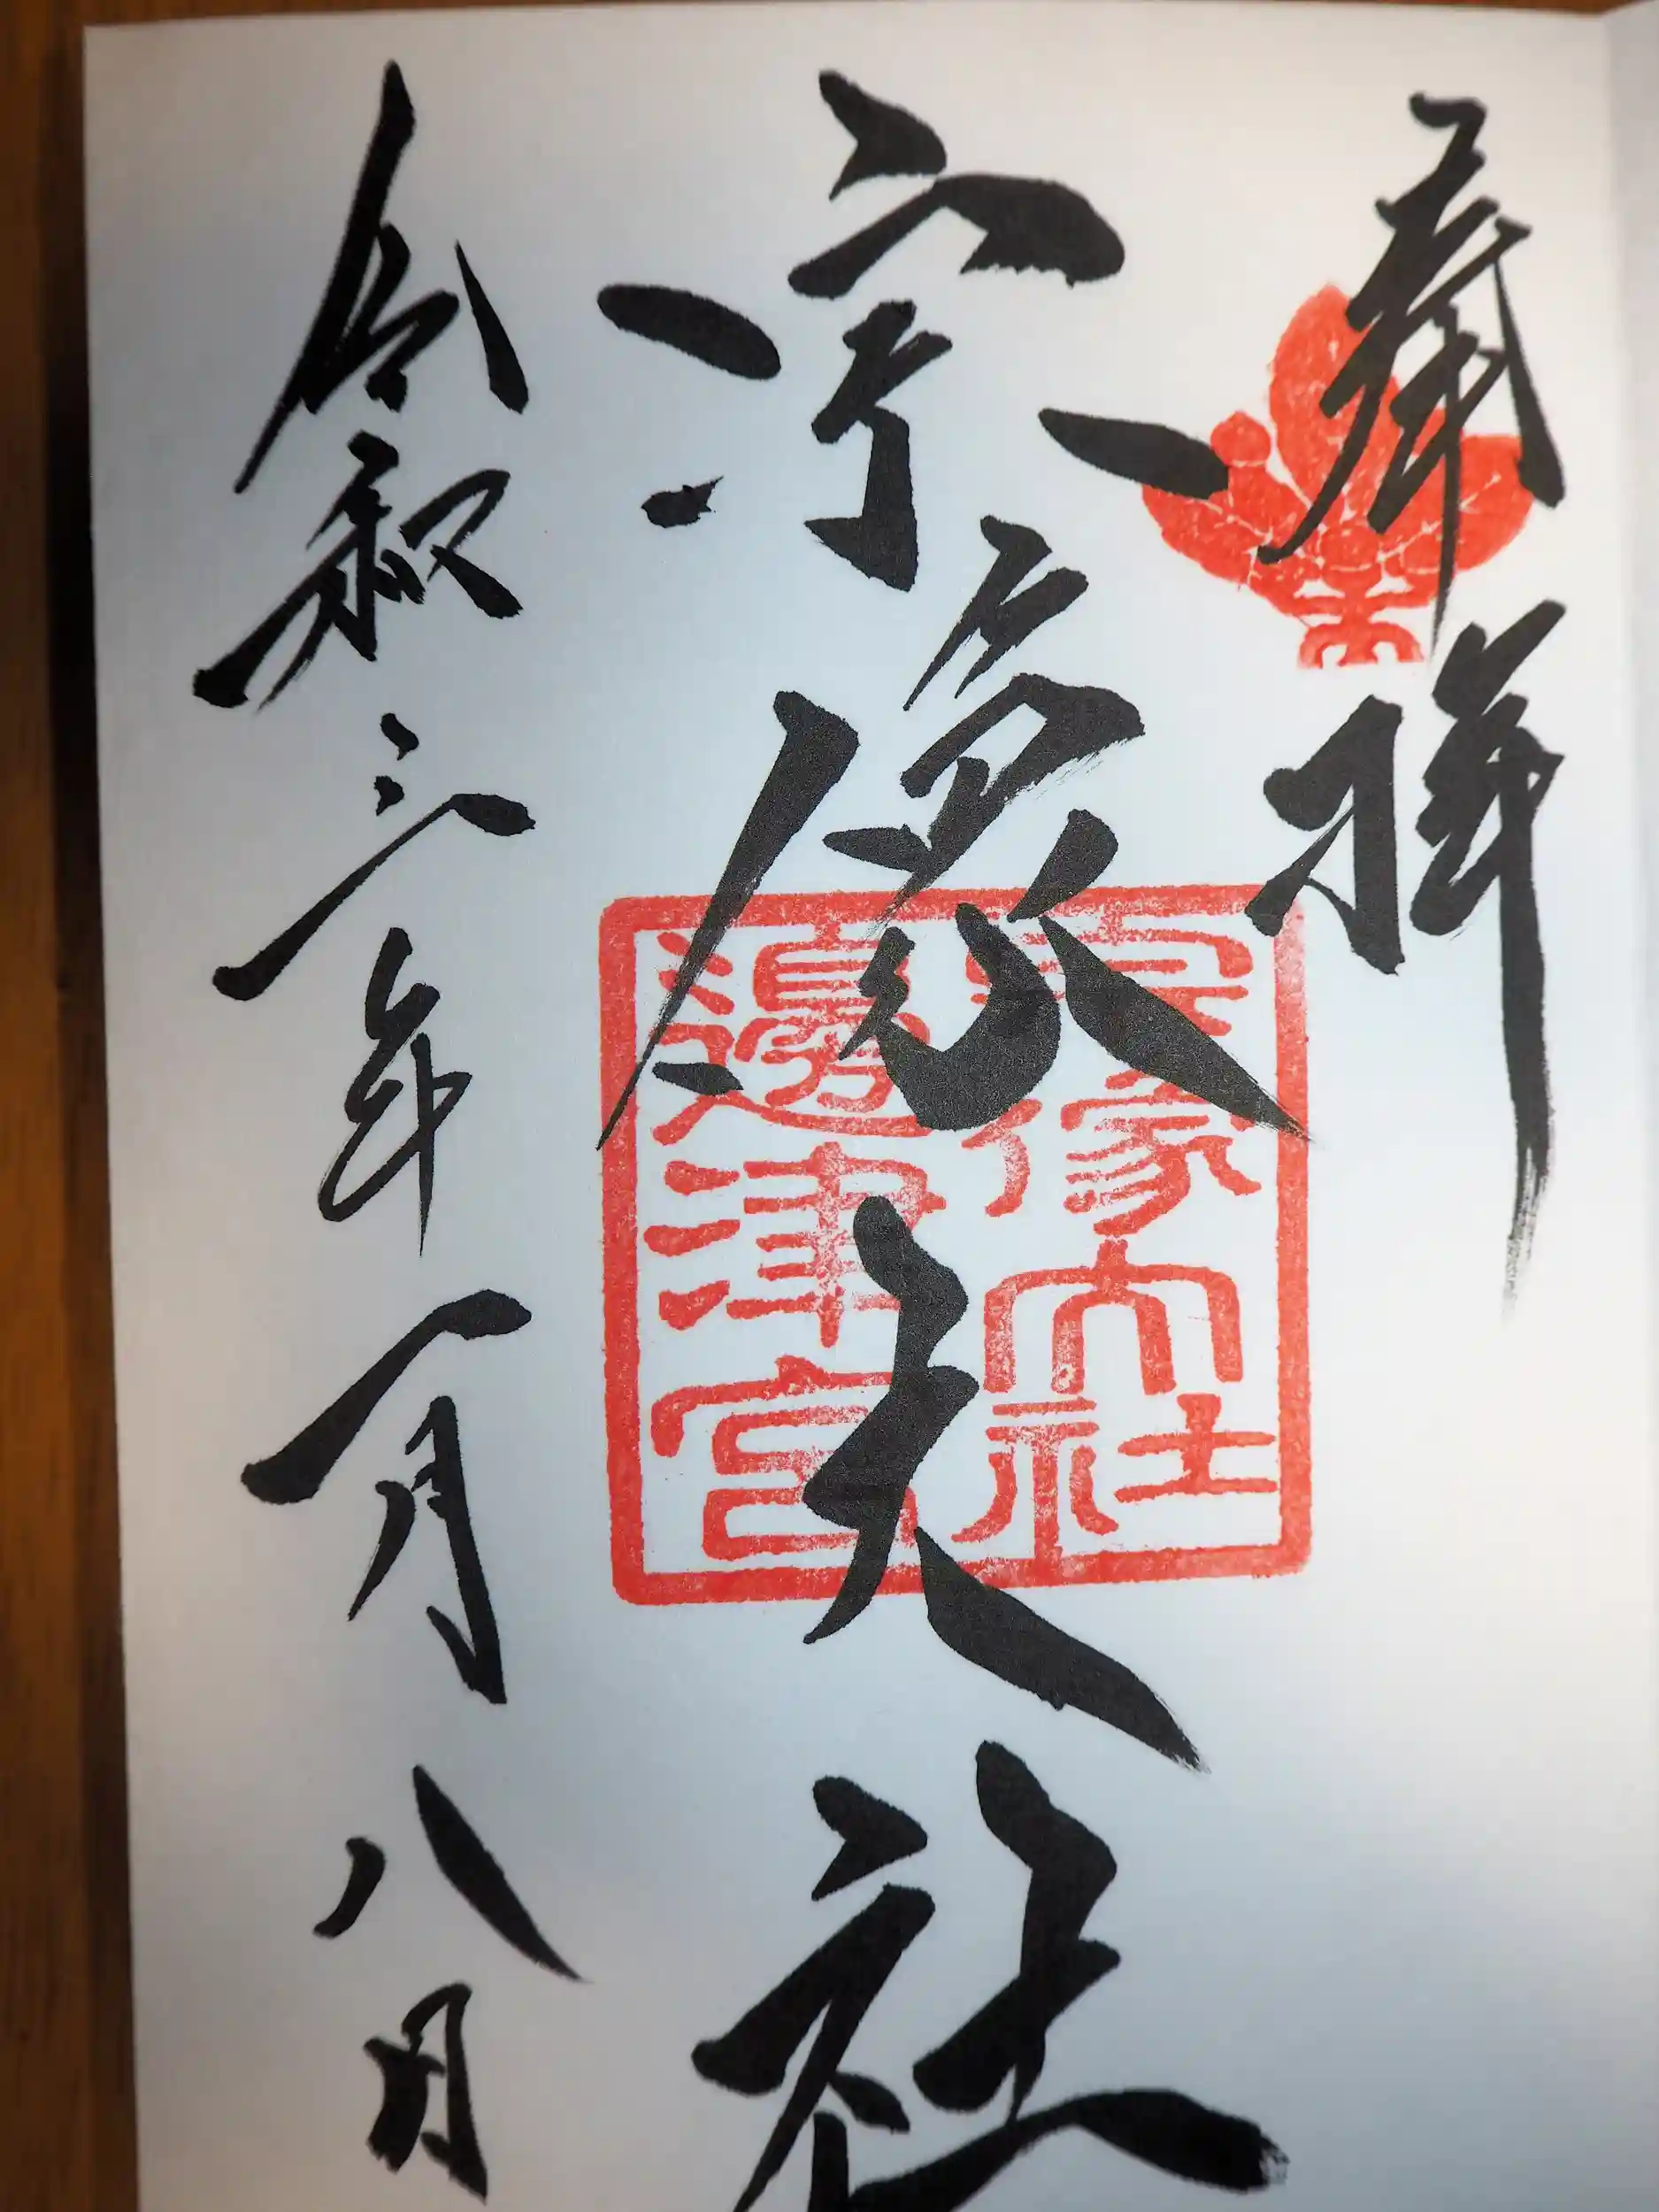 奉拝
宗像大社
宗像大社
邊津宮
令和三年一月八日